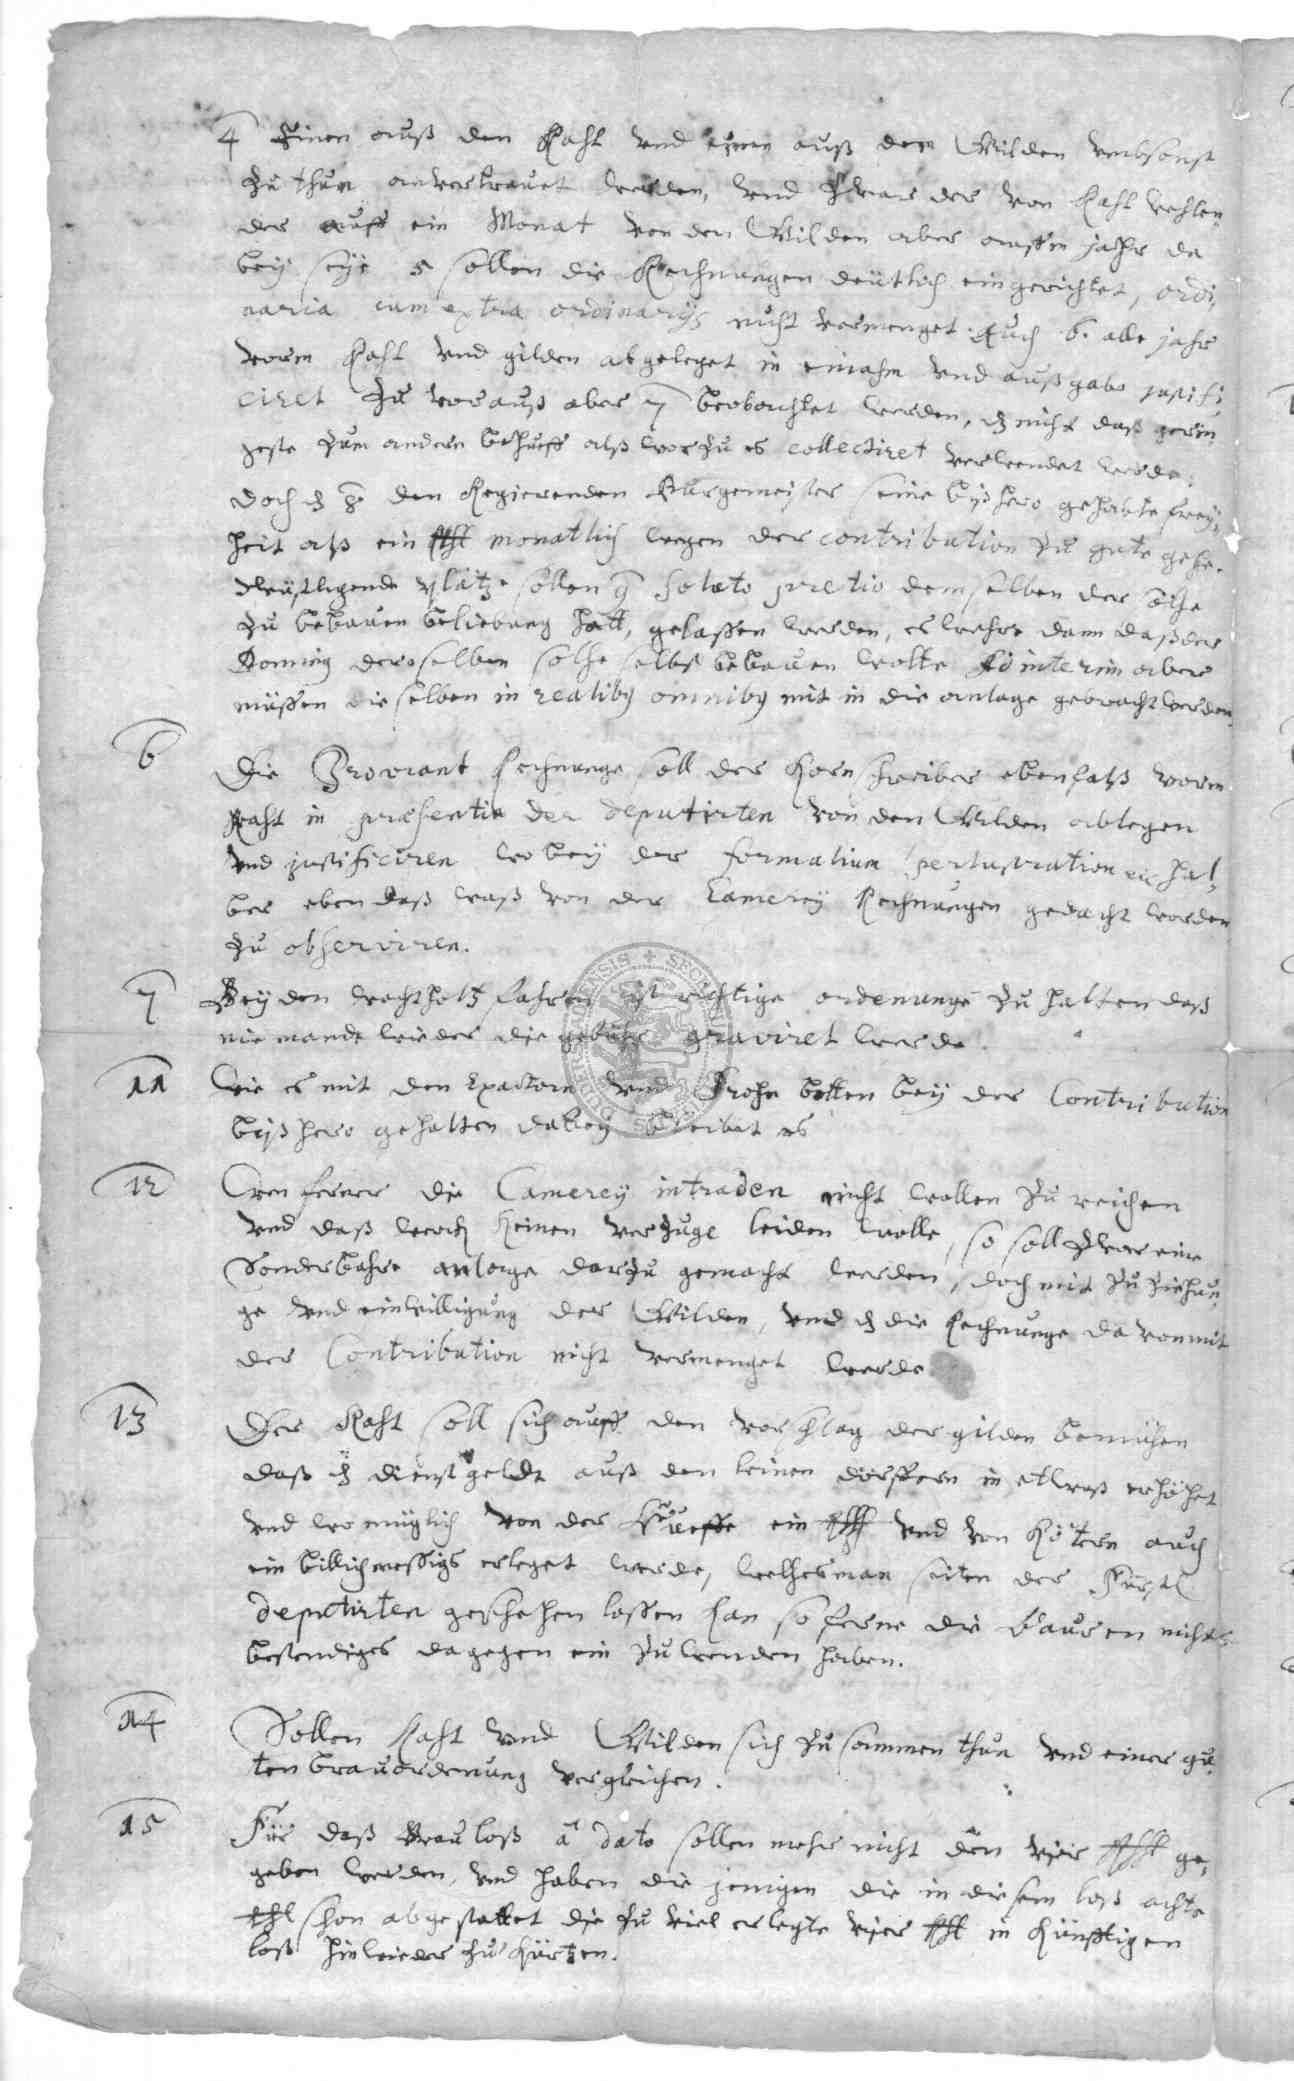 4 Einen auß den Raht vnd einen auß den Gilden vmbsonst
zu thun anvertrauet werden, vnd zwar der von Raht
der auff ein Monat von den Gilden aber auff ein jahr da
bey seye 5 sollen die Rechnungen deutlich eingerichtet, ordi,
naria cum extra ordinarijs nicht vermenget. Auch 6. alle jahr
vorm Raht vnd gilden abgeleget in einahm vnd außgabe justifi
ciret Zu vorauß aber 7 beobachtet werden, dz nicht daß gerin
geste zum andern behueff alß worzu es collectiret verwendet werde,
doch dz 8. den Regierenden Burgemeister seine bißhero gehabte frey,
heit alß ein thl monatlich wegen der contribution zu gute gehe.
Wüstligende plätze sollen 9 soluto pretio demselben der solche
zu bebauen beliebung hatt, gelassen werden, es wehre dann daß der
Dominus deroselben solche selbst bebauen wolte ad interim aber
müssen dieselben in realibus omnibus mit in die anlage gebracht werden.
6 Die Proviant Rechnunge soll der Kornschreiber ebenfalß vorm
Raht in præsentia der deputirten von den Gilden ablegen
vnd justificiren wobey der formalium perlustration etc hal,
ber eben daß waß von der Camerey Rechnungen gedacht worden
zu observiren.
7 Bey den wachtholtz fahren ist richtige ordenunge zu halten daß
niemandt wieder die gebühr graviret werde.
11 Wie es mit den Exactorn vnd Frohn botten bey der Contribution
bißhero gehalten dabey bleibet es
12 Wen ferner die Camerey intraden nicht wollen zu reichen
vnd daß werck keinen verzuge leiden wolle, so soll zwar eine
Sonderbahre anlage darzu gemacht werden, doch mit zu ziehun
ge vnd einwilligung der Gilden, vnd dz die Rechnunge davon mit
der Contribution nicht vermenget werde
13 Der Raht soll sich auff den vorschlag der gilden bemühen
daß dz dienstgeldt auß den leinen dörffern in etwaß erhöhet
vnd wo müglich von der Hueffe ein thl vnd von Kötern auch
ein billichmessigs erleget werde, welches man seiten der Fürstl
deputirten geschehen lassen kan so ferne die bauren nichts
bestendiges dagegen ein zu wenden haben.
14 Sollen Raht vnd Gilden sich zusammen thun vnd einer gu
ten brauordenung vergleichen.
15 Für daß Brauloß â dato sollen mehr nicht den vier thl ge,
geben werden, vnd haben die jenigen die in diesem loß achte
thl schon abgestattet die zu viel erlegte vier thl in künfftigen
loß hinwieder zu kürtzen.
SECRETUM